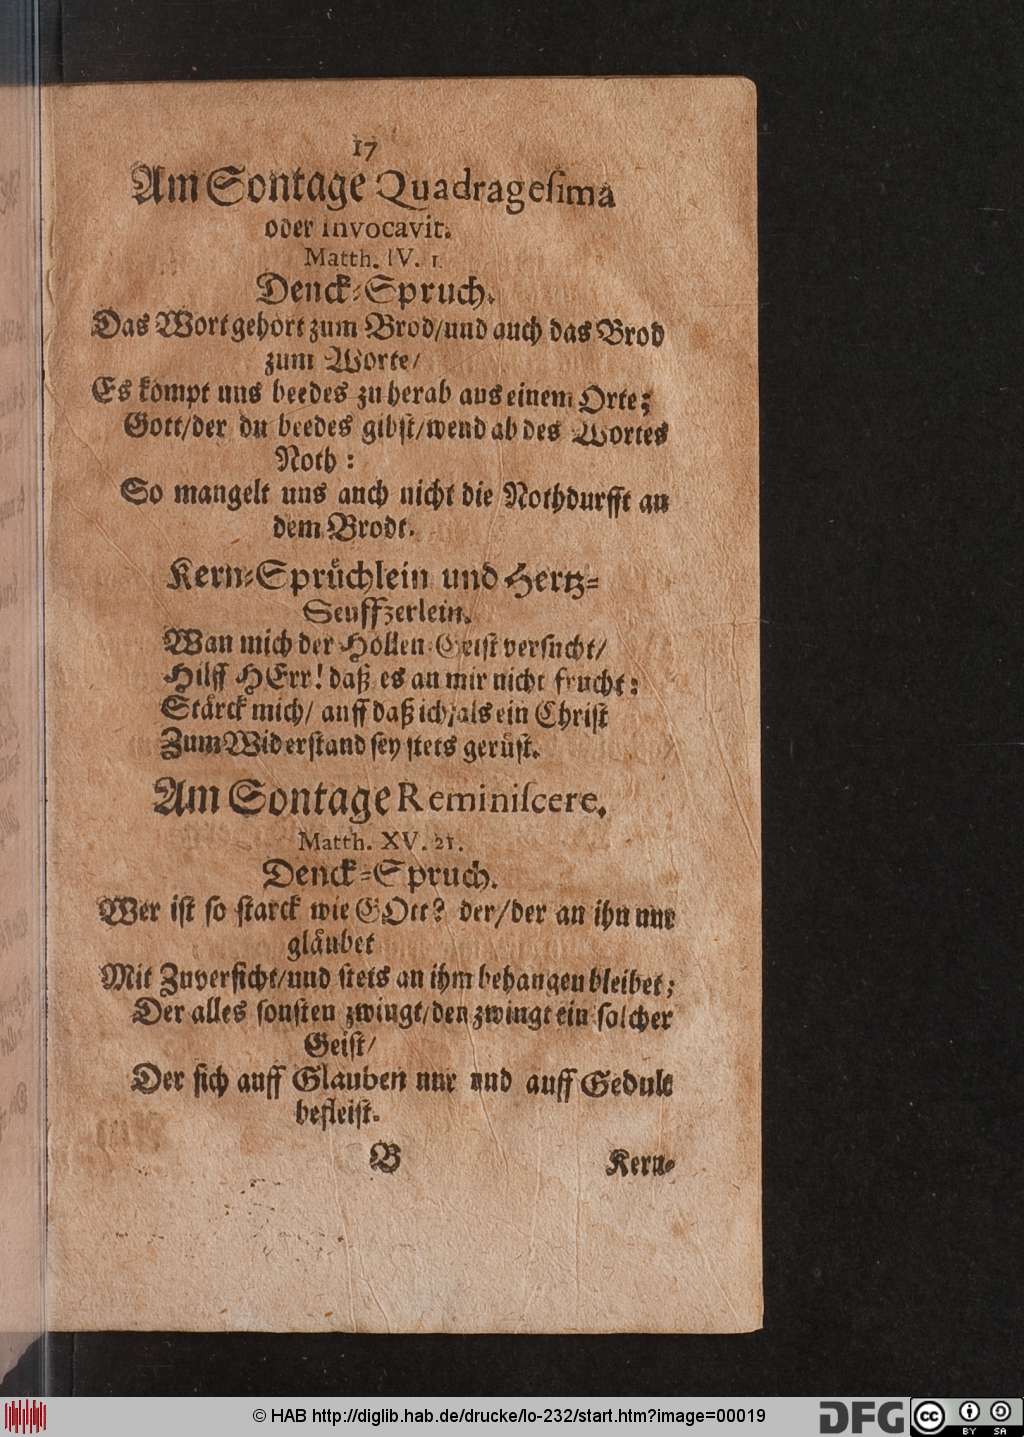 17
Am Sontage Quadragesima
oder Invocavit.
Matth. IV. 1.
Denck-Spruch.
Das Wort gehört zum Brod/und auch das Brod
zum Worte/
Es kömpt uns beedes zu herab aus einem Orte;
Gott/der du beedes gibst/wend ab des Wortes
Noth:
So mangelt uns auch nicht die Nothdurfft an
dem Brodt.
Kern-Sprüchlein und Hertz-
Seuffzerlein.
Wan mich der Höllen-Geist versucht/
Hilff HErr! daß es an mir nicht frucht:
Stärck mich/ auff daß ich/als ein Christ
Zum Widerstand sey stets gerüst.
Am Sontage Reminiscere.
Matth. XV. 21.
Denck-Spruch.
Wer ist so starck wie GOtt? der/der an ihn nur
gläubet
Mit Zuversicht/und stets an ihm behangen bleibet;
Der alles sonsten zwingt/den zwingt ein solcher
Geist/
Der sich auff Glauben nur und auff Gedult
befleist.
B Kern-
© HAB http://diglib.hab.de/drucke/lo-232/start.htm?image=00019
DFG
cc
BY SA